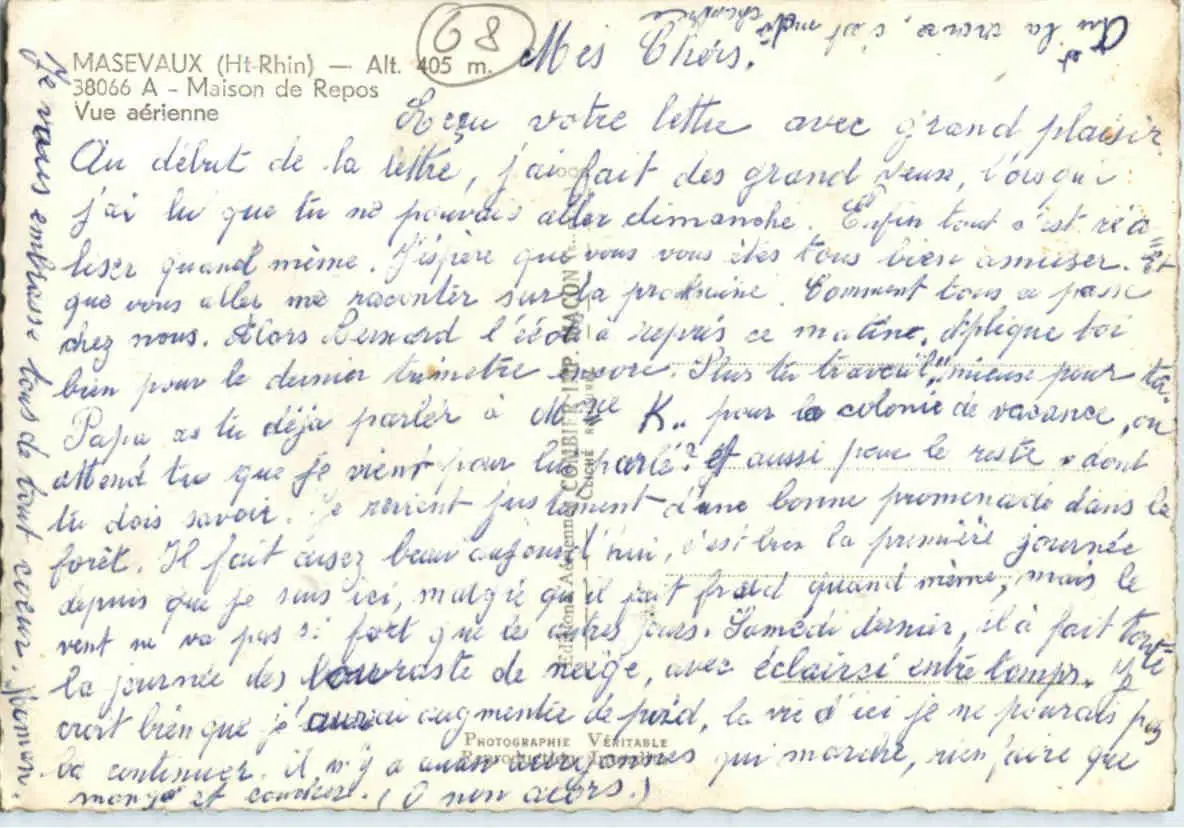 68
MASEVAUX (Ht-Rhin) — Alt. 405 m.
38066 A - Maison de Repos
Vue aérienne
Mes Chers.
Reçu votre lettre avec grand plaisir.
Au début de la lettre, j'ai fait des grand yeux, lorsque
j'ai lu que tu ne pouvais aller dimanche. Enfin tout s'est réa=
liser quand même. J'éspère que vous vous êtes tous bien amuser. Et
que vous aller me raconter sur la prochaine. Comment tous ce passe
chez nous. Alors Bernard l'école à repris ce matin, applique toi
bien pour le dernier trimetre encore. Plus tu travail, mieux pour toi
Papa as tu déjà parler à Mme K.. pour la colonie de vacance, ou
attend tu que je vient pour lui parlé? et aussi pour le reste, dont
tu dois savoir. Je revient justement d'une bonne promenade dans la
forêt. Il fait assez beau aujourd'hui, c'est bien la première journée
depuis que je suis ici, malgré qu'il fait froid quand même, mais le
vent ne va pas si fort que les autres jours. Samedi dernier, il à fait toute
la journée des bourraste de neige, avec éclairsi entre temps. Je
croit bien que j'aurai augmentée de poid, la vie d'ici je ne pourais pas
la continuer. il n'y a qui marche, rien faire que
mangé et coucher. (O non alors.)
Je vous embrasse tous de tout cœur.
Editions Aériennes COMBIER IMP. MACON
CLICHÉ
PHOTOGRAPHIE VÉRITABLE
Reproduction